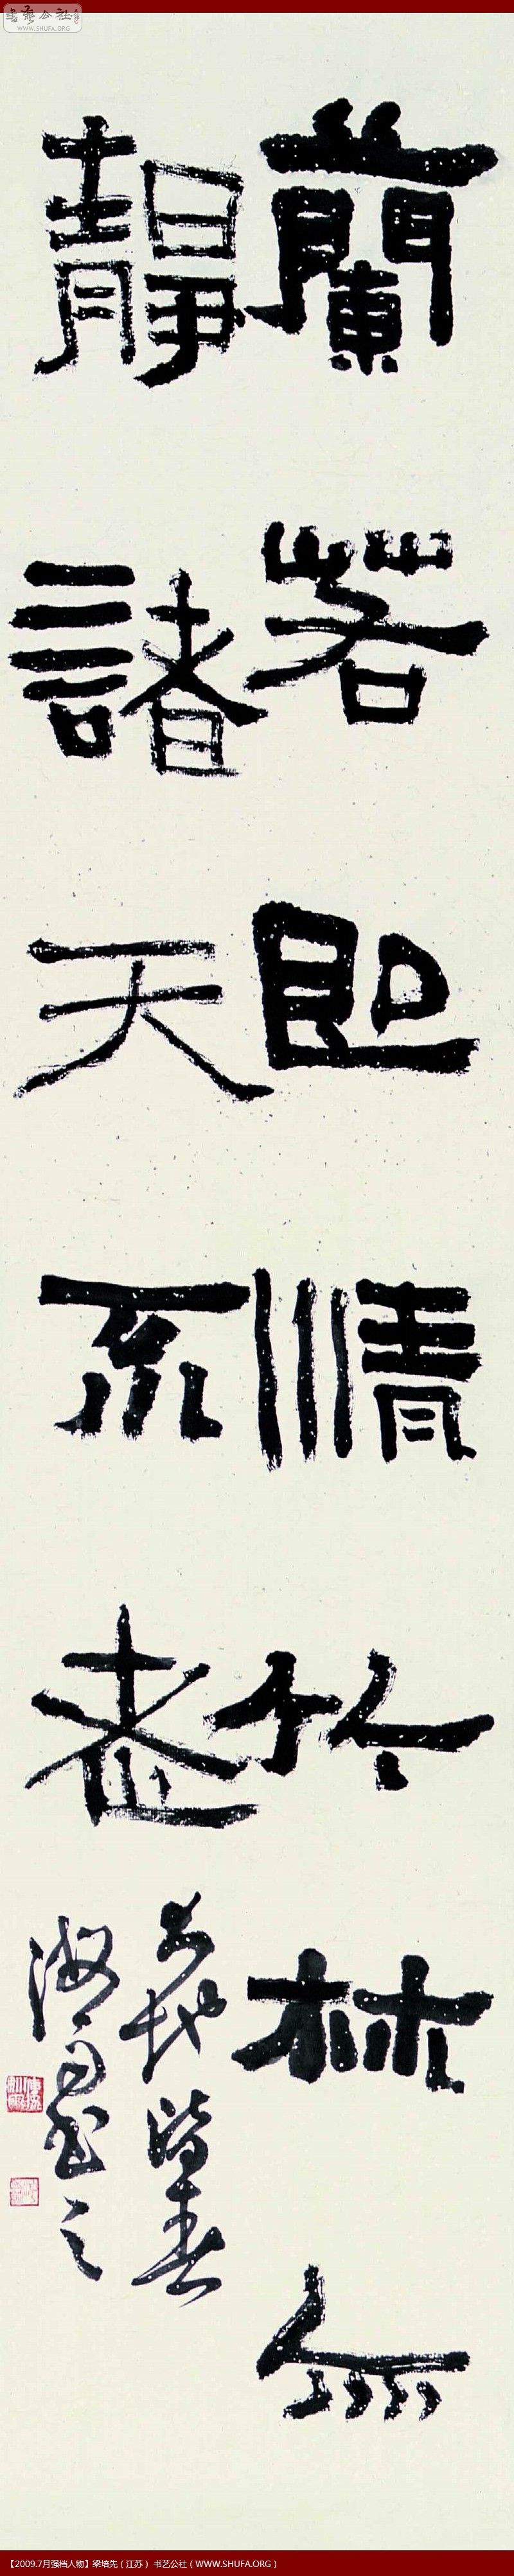 書藝公社
WWW.SHUFA.ORG
蘭若即清竹林無
靜諸天不老
大地皆春
海書之
【2009.7月强档人物】梁培先（江苏） 书艺公社（WWW.SHUFA.ORG）